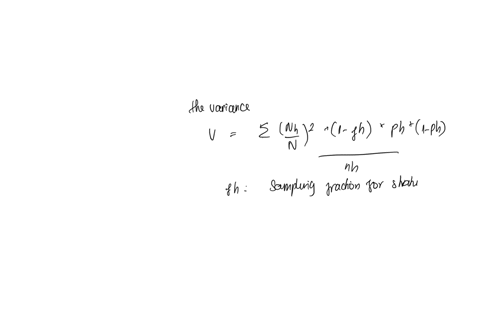 the variance
V = Σ (Nh/N)² * (1-fh) * ph * (1-ph) / nh
fh: Sampling fraction for